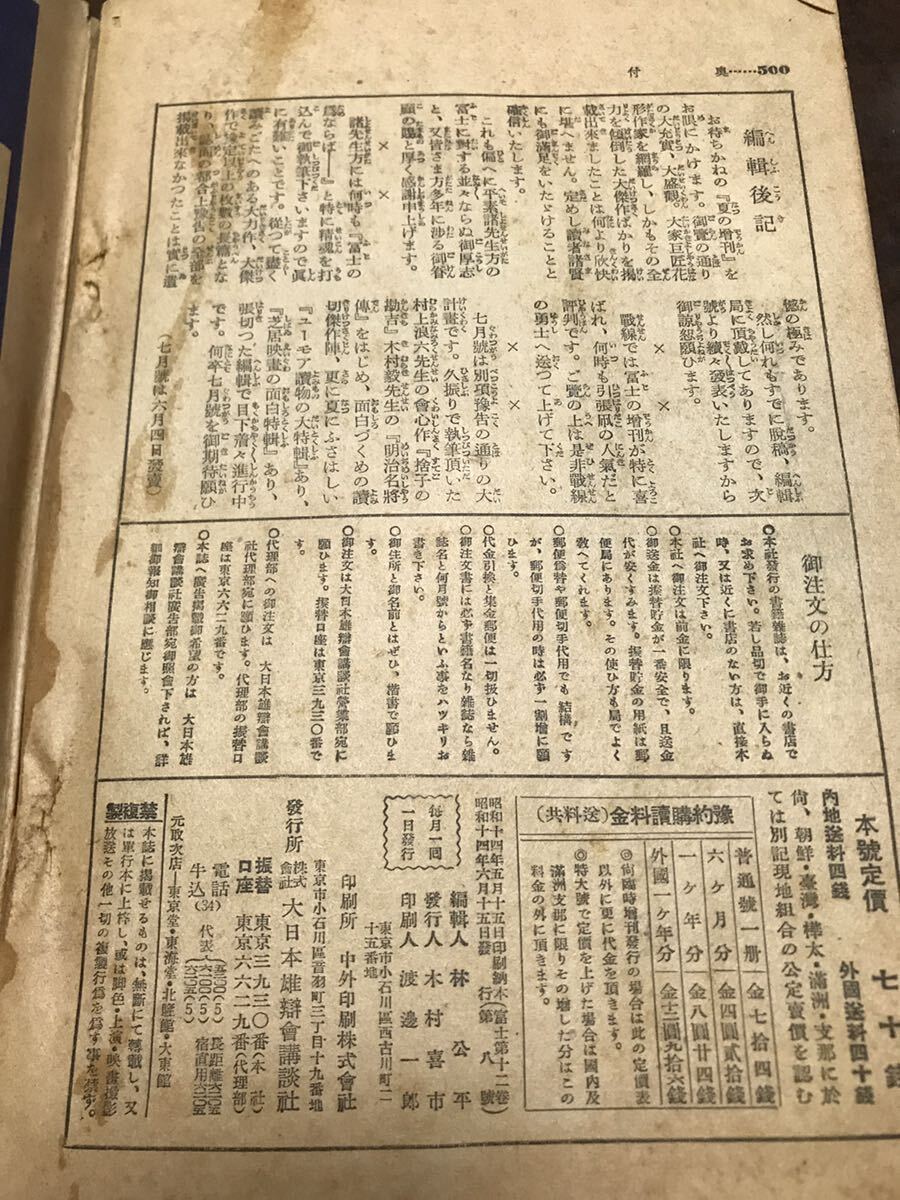 奥……500
付
編輯後記
お待ちかねの『夏の増刊』を
お眼にかけます。御覽の通り
の大充實、大盛觀。大家巨匠花
形作家を網羅し、しかもその全
力を傾倒した大傑作ばかりを揭
載出來ましたことは何より欣快
に堪へません。定めし讀者諸賢
にも御滿足をいたゞけることと
確信いたします。
これも偏へに平素諸先生方の
富士に對する並々ならぬ御厚志
と、又皆さま方多年に渉る御眷
顧の賜と厚く感謝申上げます。
× ×
諸先生方には何時も『富士の
爲ならば――』と特に精魂を打
込んで御執筆下さいますので眞
に有難いことです。從つて盡く
讀みごたへのある大力作、大傑
作で檢定以上の枚數の長篇とな
り、誌面の都合上豫告の全部を
揭載出來なかつたことは實に遺
憾の極みであります。
然し何れもすでに脱稿、編輯
局に頂戴してありますので、次
號より續々發表いたしますから
御諒恕願ひます。
× ×
戰線では富士の增刊が特に喜
ばれ、何時も引張凧の人氣だと
評判です。ご覽の上は是非戰線
の勇士へ送つて上げて下さい。
× ×
七月號は別項豫告の通りの大
計畫です。久振りで執筆頂いた
村上浪六先生の會心作『捨子の
勘吉』木村毅先生の『明治名將
傳』をはじめ、面白づくめの讀
切傑作陣、更に夏にふさはしい
『ユーモア讀物の大特輯』あり、
『芝居映畫の面白特輯』あり、
張切つた編輯で目下着々進行中
です。何卒七月號を御期待願ひ
ます。
（七月號は六月四日發賣）
御注文の仕方
○本社發行の書籍雜誌は、お近くの書店で
お求め下さい。若し品切で御手に入らぬ
時、又は近くに書店のない方は、直接本
社へ御注文下さい。
○本社へ御注文は前金に限ります。
○御送金は振替貯金が一番安全で、且送金
代が安くすみます。振替貯金の用紙は郵
便局にあります。その使ひ方も局でよく
敎へてくれます。
○郵便爲替や郵便切手代用でも結構です
が、郵便切手代用の時は必ず一割增に願
ひます。
○代金引換と集金郵便は一切扱ひません。
○御注文書には必ず書籍名なり雜誌なら雜
誌名と何月號からといふ事をハツキリお
書き下さい。
○御住所と御名前とはぜひ、楷書で願ひま
す。
○御注文は大日本雄辯會講談社營業部宛に
願ひます。振替口座は東京三九三〇番で
す。
○代理部への御注文は 大日本雄辯會講談
社代理部宛に願ひます。代理部の振替口
座は東京六六二九番です。
○本誌へ廣告揭載御希望の方は 大日本雄
辯會講談社廣告部宛御照會下されば、詳
細御報知御相談に應じます。
本號定價 七十錢
內地送料四錢 外國送料四十錢
尙、朝鮮・臺灣・樺太・滿洲・支那に於
ては別記現地組合の公定賣價を認む
豫約購讀料金（送料共）
普通號一册 金七拾四錢
六ヶ月分 金四圓貳拾錢
一ヶ年分 金八圓廿四錢
外國一ヶ年分 金十三圓九拾六錢
◎尙臨時增刊發行の場合は此の定價表
以外に更に代金を頂きます。
◎特大號で定價を上げた場合は國內及
滿洲支那に限りその增した分はこの
料金の外に頂きます。
昭和十四年五月十五日印刷納本（富士第十二卷
昭和十四年六月十五日發 行（第 八 號
每月一回
一日發行
編輯人 林 公 平
發行人 木村喜市
印刷人 渡邊一郎
東京市小石川區西古川町二
十五番地
印刷所 中外印刷株式會社
東京市小石川區音羽町三丁目十九番地
發行所 株式會社 大日本雄辯會講談社
振替口座 東京三九三〇番（本 社）
東京六六二九番（代理部）
電話
牛込(34) 代表
長距離
宿直用
元取次店――東京堂・東海堂・北隆館・大東館
禁複製
本誌に揭載せるものは、無斷にて轉載し、又
は單行本に上梓し、或は脚色・上演・映畫撮影
放送その他一切の複製行爲を爲す事を禁ず。